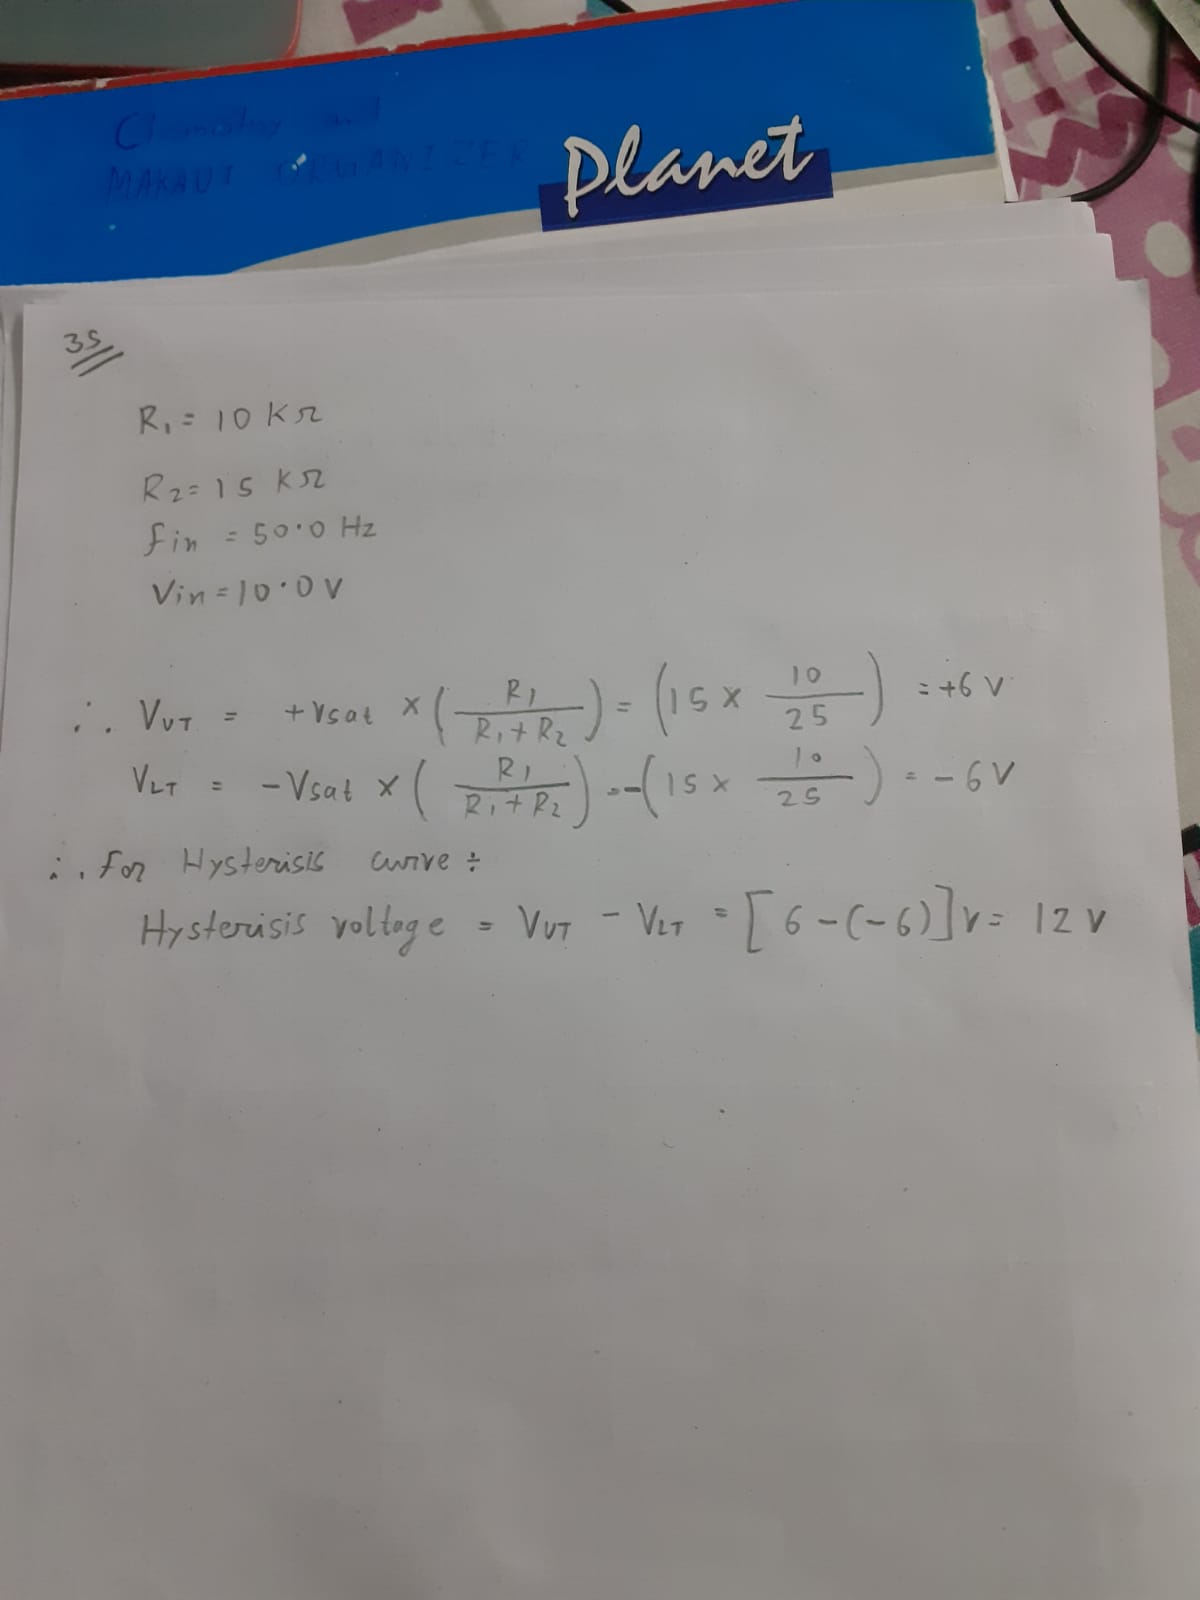 Chemistry and
MAKAUT ORGANIZER
Planet
35
R₁ = 10 KΩ
R₂ = 15 KΩ
fin = 50·0 Hz
Vin = 10·0 V
∴ VUT = +Vsat × (R₁/(R₁+R₂)) = (15 × 10/25) = +6 V
VLT = -Vsat × (R₁/(R₁+R₂)) = -(15 × 10/25) = -6V
∴ For Hysterisis curve ÷
Hysterisis voltage = VUT - VLT = [6-(-6)]V = 12 V